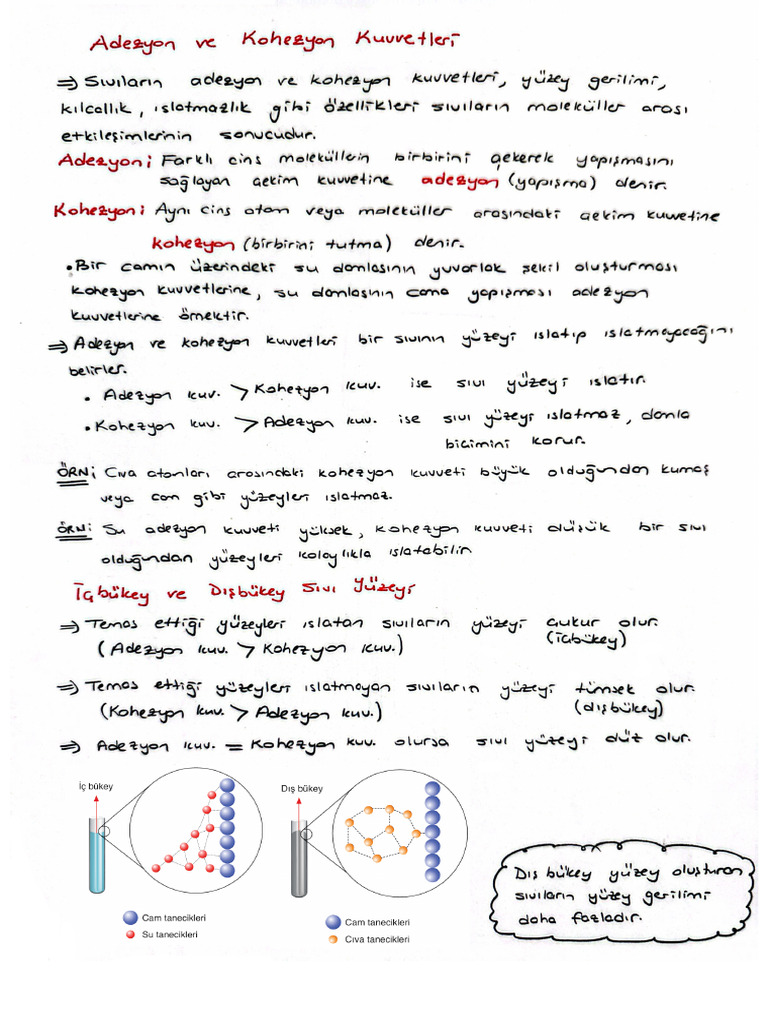 Adezyon ve Kohezyon Kuvvetleri
⇒ Sıvıların adezyon ve kohezyon kuvvetleri, yüzey gerilimi,
kılcallık, ıslatmazlık gibi özellikleri sıvıların moleküller arası
etkileşimlerinin sonucudur.
Adezyon: Farklı cins moleküllein birbirini çekerek yapışmasını
sağlayan çekim kuvvetine adezyon (yapışma) denir.
Kohezyon: Aynı cins atom veya moleküller arasındaki çekim kuvvetine
kohezyon (birbirini tutma) denir.
• Bir camın üzerindeki su damlasının yuvarlak şekil oluşturması
kohezyon kuvvetlerine, su damlasının cama yapışması adezyon
kuvvetlerine örnektir.
⇒ Adezyon ve kohezyon kuvvetleri bir sıvının yüzeyi ıslatıp ıslatmayacağını
belirler.
• Adezyon kuv. > Kohezyon kuv. ise sıvı yüzeyi ıslatır.
• Kohezyon kuv. > Adezyon kuv. ise sıvı yüzeyi ıslatmaz, damla
biçimini korur.
ÖRN: Cıva atomları arasındaki kohezyon kuvveti büyük olduğundan kumaş
veya cam gibi yüzeyleri ıslatmaz.
ÖRN: Su adezyon kuvveti yüksek, kohezyon kuvveti düşük bir sıvı
olduğundan yüzeyleri kolaylıkla ıslatabilir.
İçbükey ve Dışbükey Sıvı Yüzeyi
⇒ Temas ettiği yüzeyleri ıslatan sıvıların yüzeyi çukur olur.
(Adezyon kuv. > Kohezyon kuv.) (içbükey)
⇒ Temas ettiği yüzeyleri ıslatmayan sıvıların yüzeyi tümsek olur.
(Kohezyon kuv. > Adezyon kuv.) (dışbükey)
⇒ Adezyon kuv. = Kohezyon kuv. olursa sıvı yüzeyi düz olur.
İç bükey
Dış bükey
Cam tanecikleri
Su tanecikleri
Cam tanecikleri
Cıva tanecikleri
Dış bükey yüzey oluşturan
sıvıların yüzey gerilimi
daha fazladır.